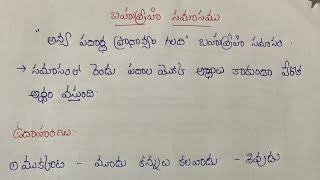 బహువ్రీహి సమాసము
"అన్య పదార్థ ప్రాధాన్యం గలది" బహువ్రీహి సమాసం.
→ సమాసంలో రెండు పదాల యొక్క అర్థాలు కాకుండా వేరొక
అర్థం వస్తుంది.
ఉదాహరణలు:
① ముక్కంటి - మూడు కన్నులు కలవాడు - శివుడు